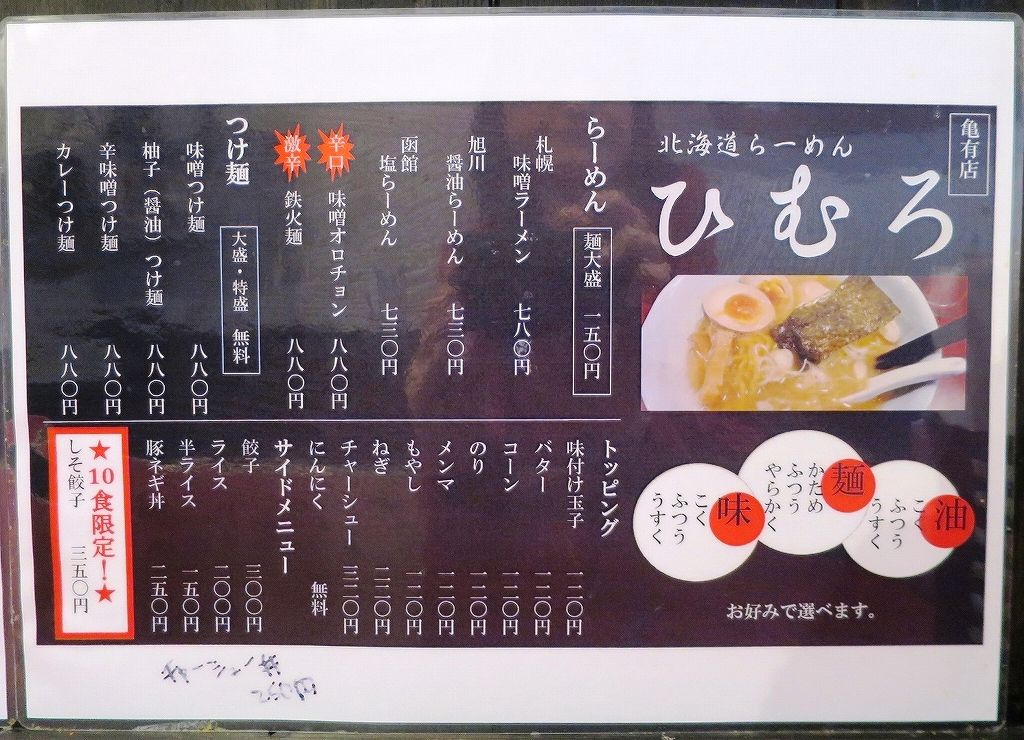 亀有店
北海道らーめん
ひむろ
油
こく
ふつう
うすく
麺
かため
ふつう
やらかく
味
こく
ふつう
うすく
お好みで選べます。
らーめん
麺大盛 一五〇円
札幌
味噌ラーメン 七八〇円
旭川
醤油らーめん 七三〇円
函館
塩らーめん 七三〇円
辛口 味噌オロチョン 八八〇円
激辛 鉄火麺 八八〇円
つけ麺
大盛・特盛 無料
味噌つけ麺 八八〇円
柚子（醤油）つけ麺 八八〇円
辛味噌つけ麺 八八〇円
カレーつけ麺 八八〇円
トッピング
味付け玉子 一二〇円
バター 一二〇円
コーン 一二〇円
のり 一二〇円
メンマ 一二〇円
もやし 一二〇円
ねぎ 二二〇円
チャーシュー 三二〇円
にんにく 無料
サイドメニュー
餃子 三〇〇円
ライス 二〇〇円
半ライス 一五〇円
豚ネギ丼 二五〇円
★10食限定！★
しそ餃子 三五〇円
チャーシュー丼
250円